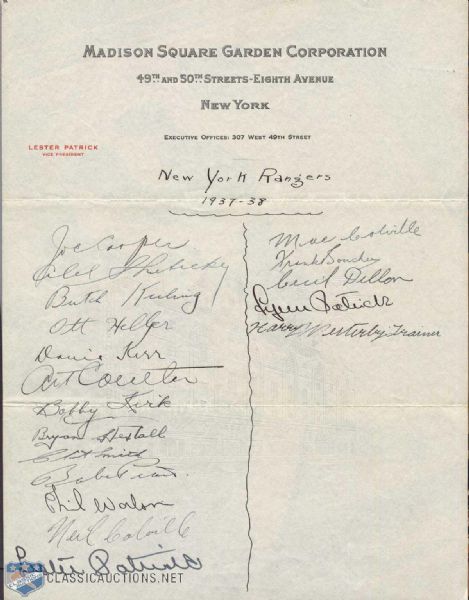 MADISON SQUARE GARDEN CORPORATION
49TH AND 50TH STREETS-EIGHTH AVENUE
NEW YORK
EXECUTIVE OFFICES: 307 WEST 49TH STREET
LESTER PATRICK
VICE PRESIDENT
New York Rangers
1937-38
Joe Cooper
Alex Shibicky
Butch Keeling
Ott Heller
Dave Kerr
Art Coulter
Bobby Kirk
Bryan Hextall
Clint Smith
Babe Pratt
Phil Watson
Neil Colville
Lester Patrick
Mac Colville
Frank Boucher
Cecil Dillon
Lynn Patrick
Harry Westerby Trainer
CLASSICAUCTIONS.NET